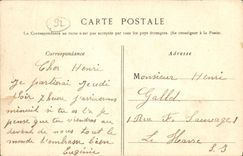 CARTE POSTALE
La Correspondance au recto n'est pas acceptée par tous les pays étrangers. (Se renseigner à la Poste.)
Correspondance
Adresse
Cher Henri
Je partirai Jeudi
pour 7 heure j'arriverai
minuit si tu
pense que tu viendras au
devant de nous tout le
monde t'embrasse bien
Eugénie
Monsieur Henri
1 Rue Sauvage 1
Le Havre
S. I